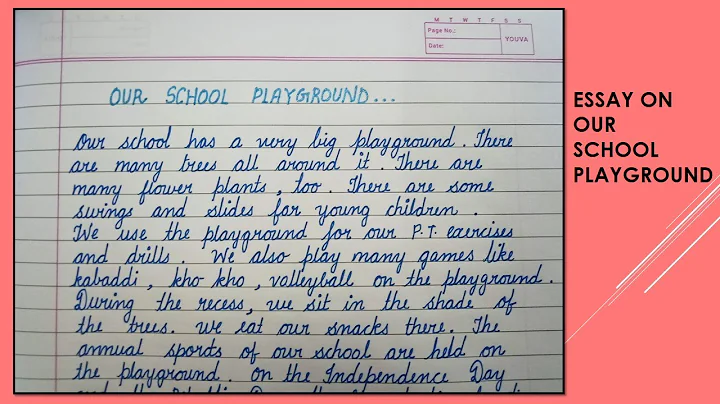 M T W T F S S
Page No.:
YOUVA
Date:
OUR SCHOOL PLAYGROUND...
Our school has a very big playground. There
are many trees all around it. There are
many flower plants, too. There are some
swings and slides for young children.
We use the playground for our P.T. exercises
and drills. We also play many games like
kabaddi, kho kho, volleyball on the playground.
During the recess, we sit in the shade of
the trees. We eat our snacks there. The
annual sports of our school are held on
the playground. On the Independence Day
ESSAY ON
OUR
SCHOOL
PLAYGROUND